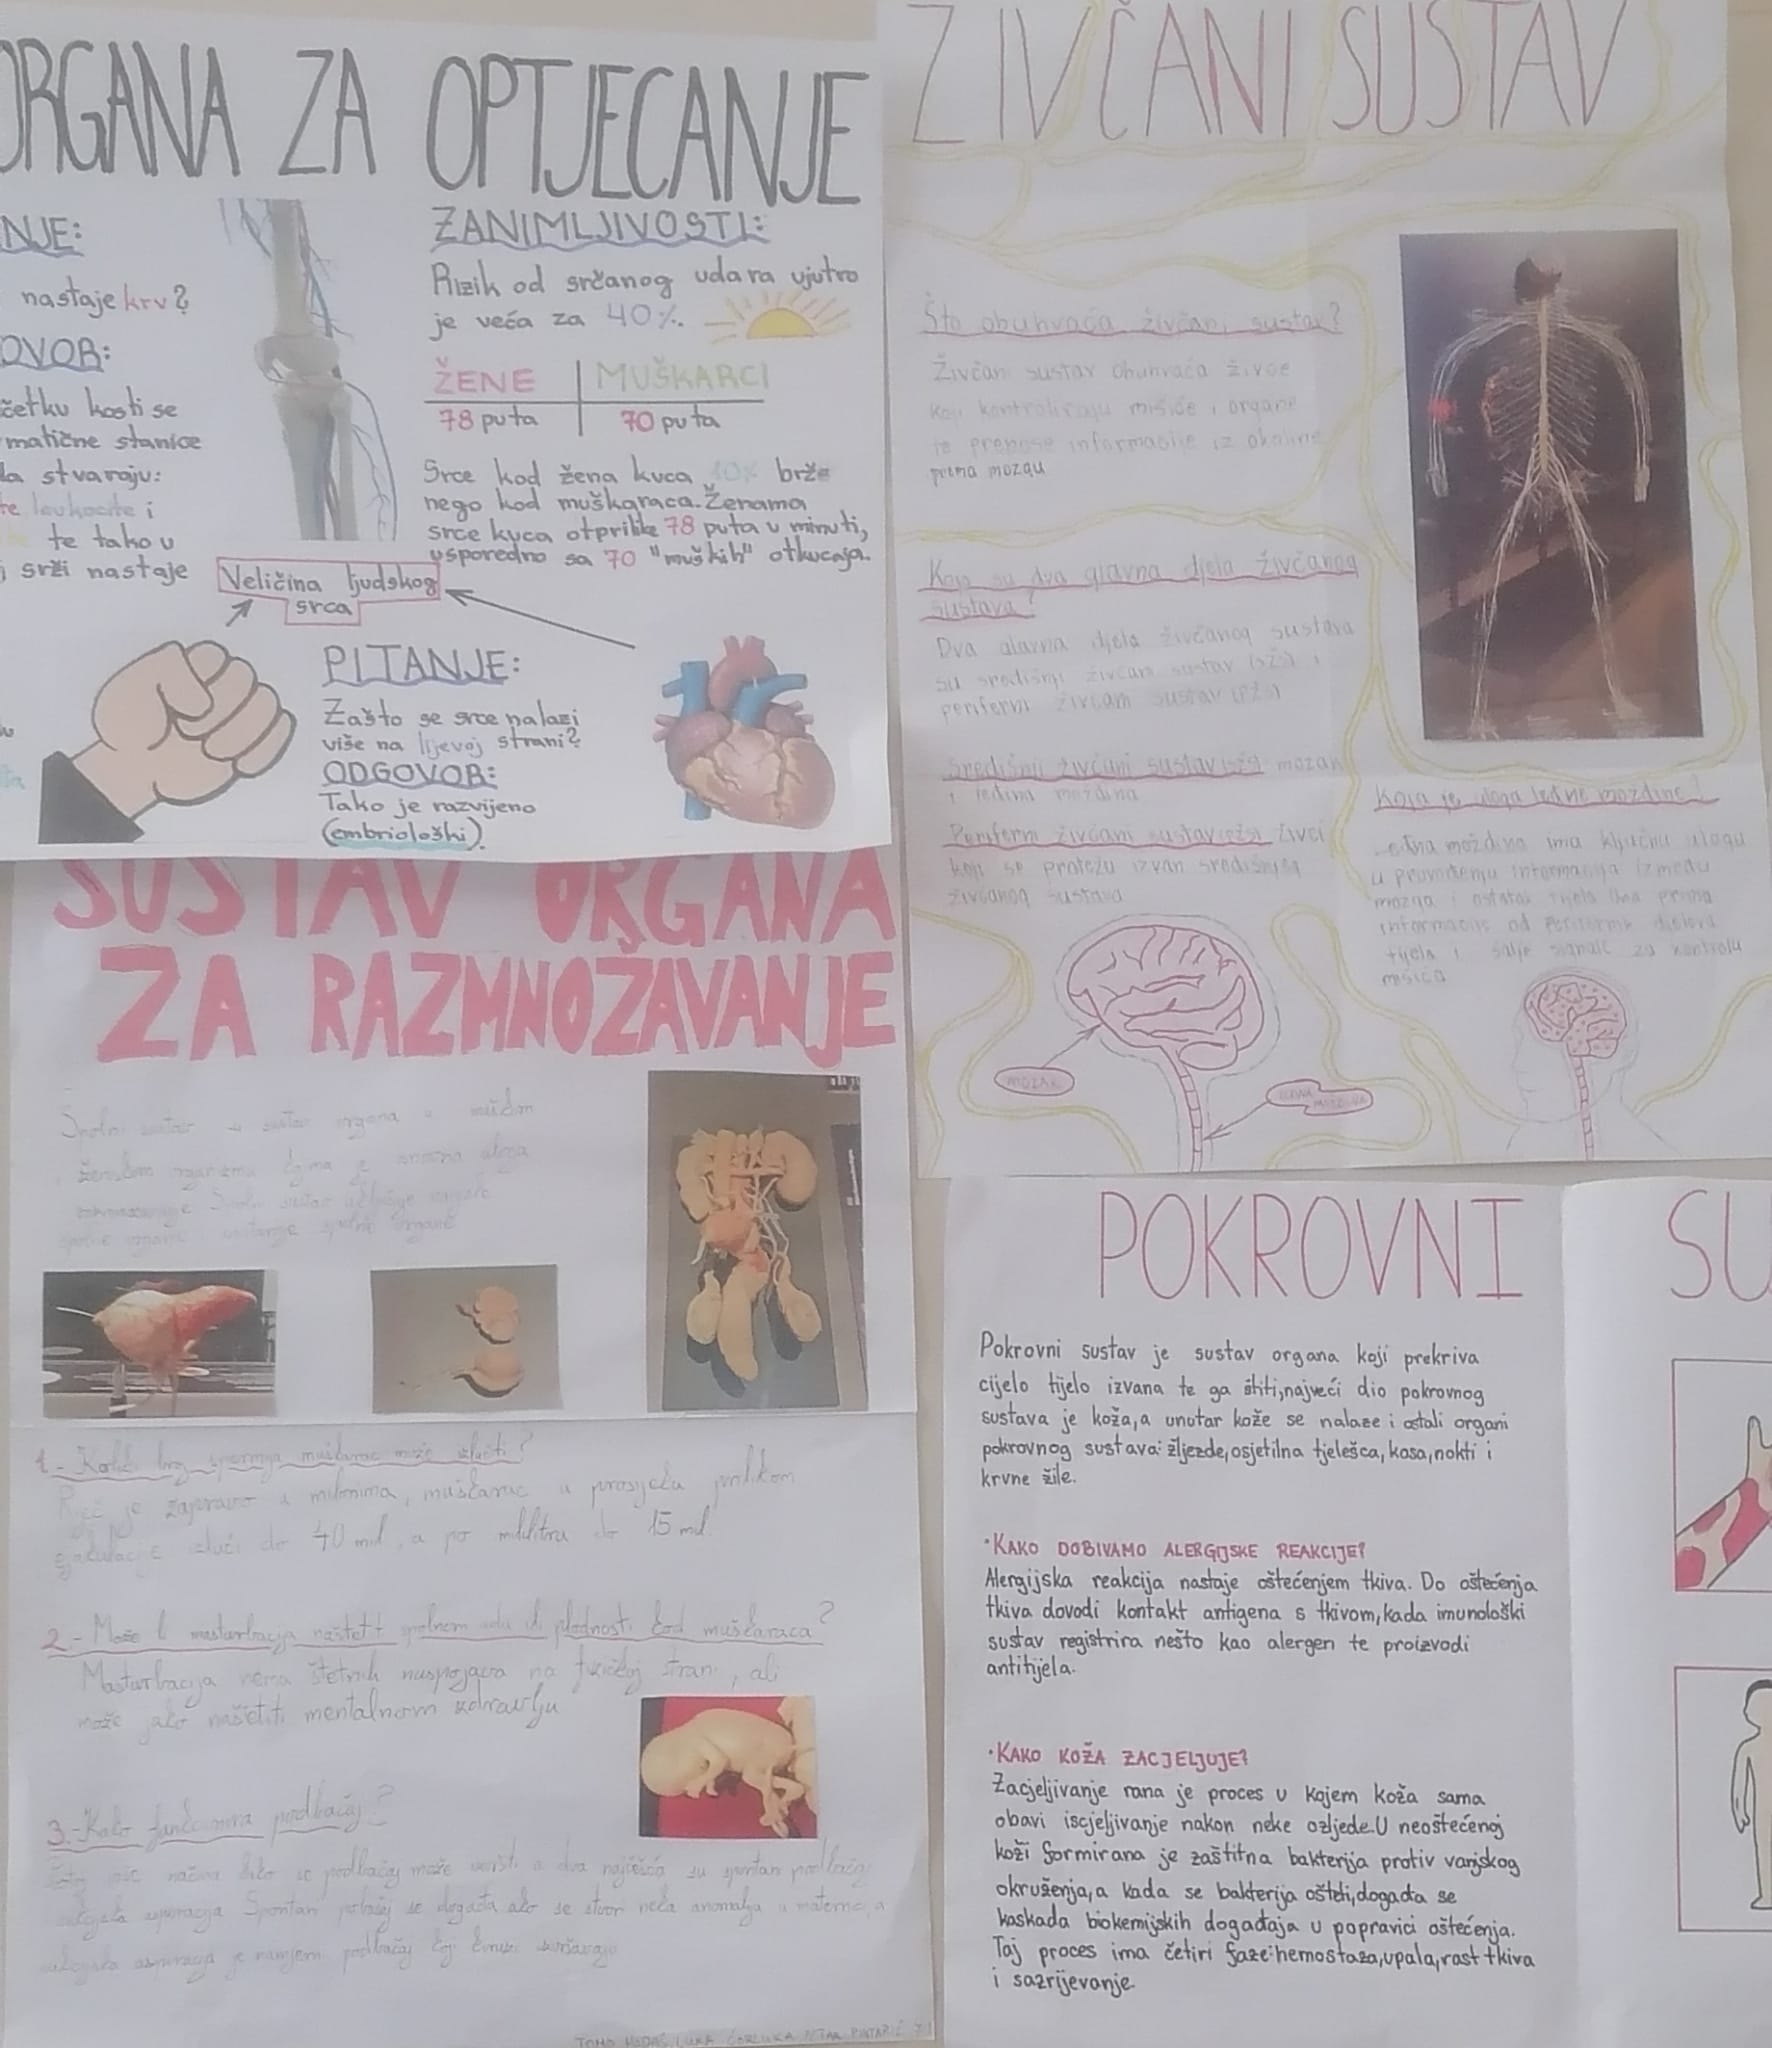 ORGANA ZA OPTJECANJE
NJE:
nastaje krv?
OVOR:
četku kosti se
matične stanice
da stvaraju:
te leukocite i
te tako u
j srži nastaje
ZANIMLJIVOSTI:
Rizik od srčanog udara ujutro
je veća za 40%.
ŽENE | MUŠKARCI
78 puta | 70 puta
Srce kod žena kuca 10% brže
nego kod muškaraca. Ženama
srce kuca otprilike 78 puta u minuti,
usporedno sa 70 "muških" otkucaja.
Veličina ljudskog
srca
PITANJE:
Zašto se srce nalazi
više na lijevoj strani?
ODGOVOR:
Tako je razvijeno
(embriološki).
ŽIVČANI SUSTAV
Što obuhvaća živčani sustav?
Živčani sustav obuhvaća živce
koji kontroliraju mišiće i organe
te prenose informacije iz okoline
prema mozgu
Koja su dva glavna djela živčanog
sustava?
Dva glavna djela živčanog sustava
su središnji živčani sustav (SŽS) i
periferni živčani sustav (PŽS)
Središnji živčani sustav (SŽS) mozak
i leđna moždina
Periferni živčani sustav (PŽS) živci
koji se protežu izvan središnjeg
živčanog sustava
Koja je uloga leđne moždine?
Leđna moždina ima ključnu ulogu
u provođenju informacija između
mozga i ostatak tijela. Ona prima
informacije od perifernih dijelova
tijela i šalje signale za kontrolu
mišića
MOZAK
MOŽDINA
SUSTAV ORGANA
ZA RAZMNOŽAVANJE
Spolni sustav je sustav organa u muškom
i ženskom organizmu čija je osnovna uloga
razmnožavanje. Spolni sustav uključuje vanjske
spolne organe i unutarnje spolne organe
1.- Koliki broj spermija muškarac može izlučiti?
Riječ je zapravo u milionima, muškarac u prosjeku prilikom
ejakulacije izluči do 40 mil, a po mililitru do 15 mil.
2.- Može li masturbacija naštetit spolnom udu ili plodnosti kod muškaraca?
Masturbacija nema štetnih nuspojava na fizičkoj strani, ali
može jako naštetiti mentalnom zdravlju
3.- Kako funkcionira pobačaj?
načina kako se pobačaj može izvesti a dva najčešća su spontani pobačaj
aspiracija. Spontani pobačaj se događa ako se stvori neka anomalija u maternici, a
aspiracija je namjerni pobačaj
LUKA ČORLUKA PETAR PINTARIĆ
POKROVNI SU
Pokrovni sustav je sustav organa koji prekriva
cijelo tijelo izvana te ga štiti, najveći dio pokrovnog
sustava je koža, a unutar kože se nalaze i ostali organi
pokrovnog sustava: žlijezde, osjetilna tjelešca, kosa, nokti i
krvne žile.
•KAKO DOBIVAMO ALERGIJSKE REAKCIJE?
Alergijska reakcija nastaje oštećenjem tkiva. Do oštećenja
tkiva dovodi kontakt antigena s tkivom, kada imunološki
sustav registrira nešto kao alergen te proizvodi
antitijela.
•KAKO KOŽA ZACJELJUJE?
Zacjeljivanje rana je proces u kojem koža sama
obavi iscjeljivanje nakon neke ozljede. U neoštećenoj
koži formirana je zaštitna bakterija protiv vanjskog
okruženja, a kada se bakterija ošteti, događa se
kaskada biokemijskih događaja u popravici oštećenja.
Taj proces ima četiri faze: hemostaza, upala, rast tkiva
i sazrijevanje.